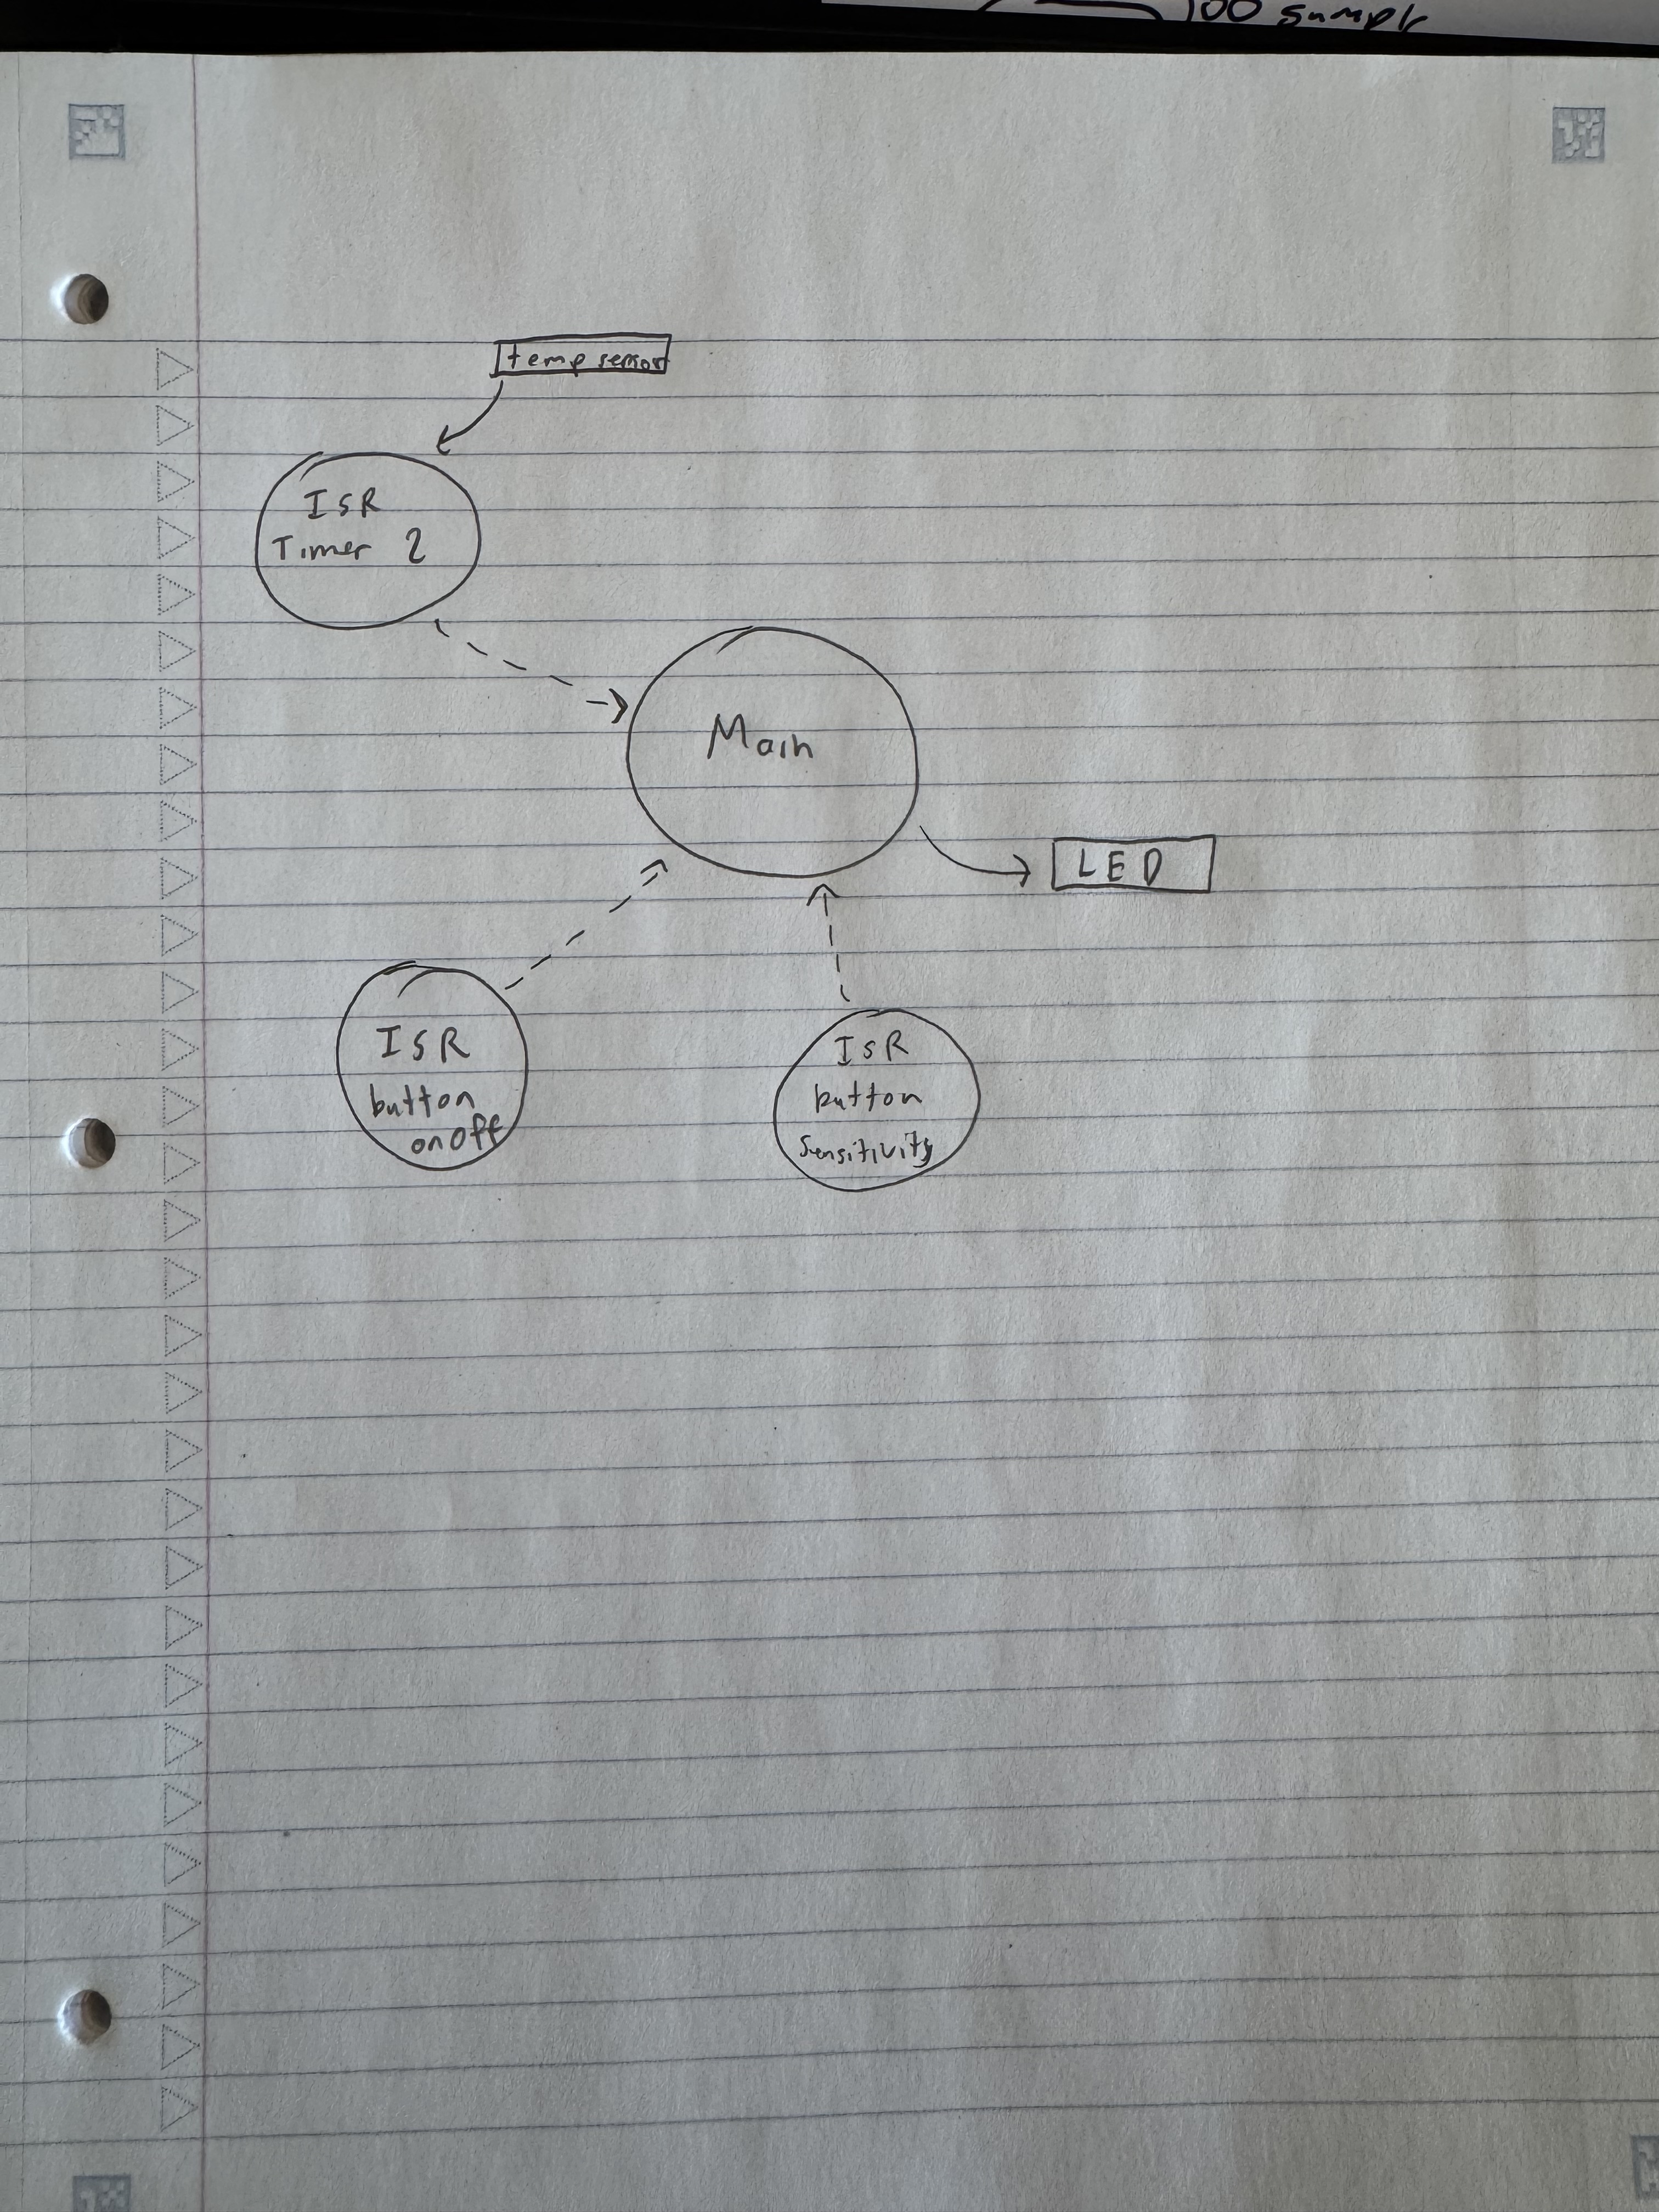 100 sample
temp sensor
ISR
Timer 2
Main
LED
ISR
button
onoff
ISR
button
Sensitivity